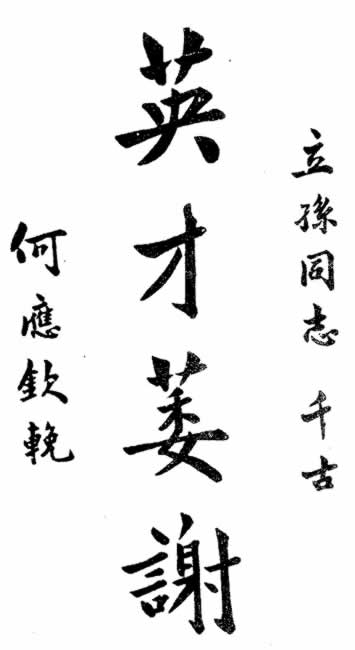 立孫同志 千古
英才萎謝
何應欽輓